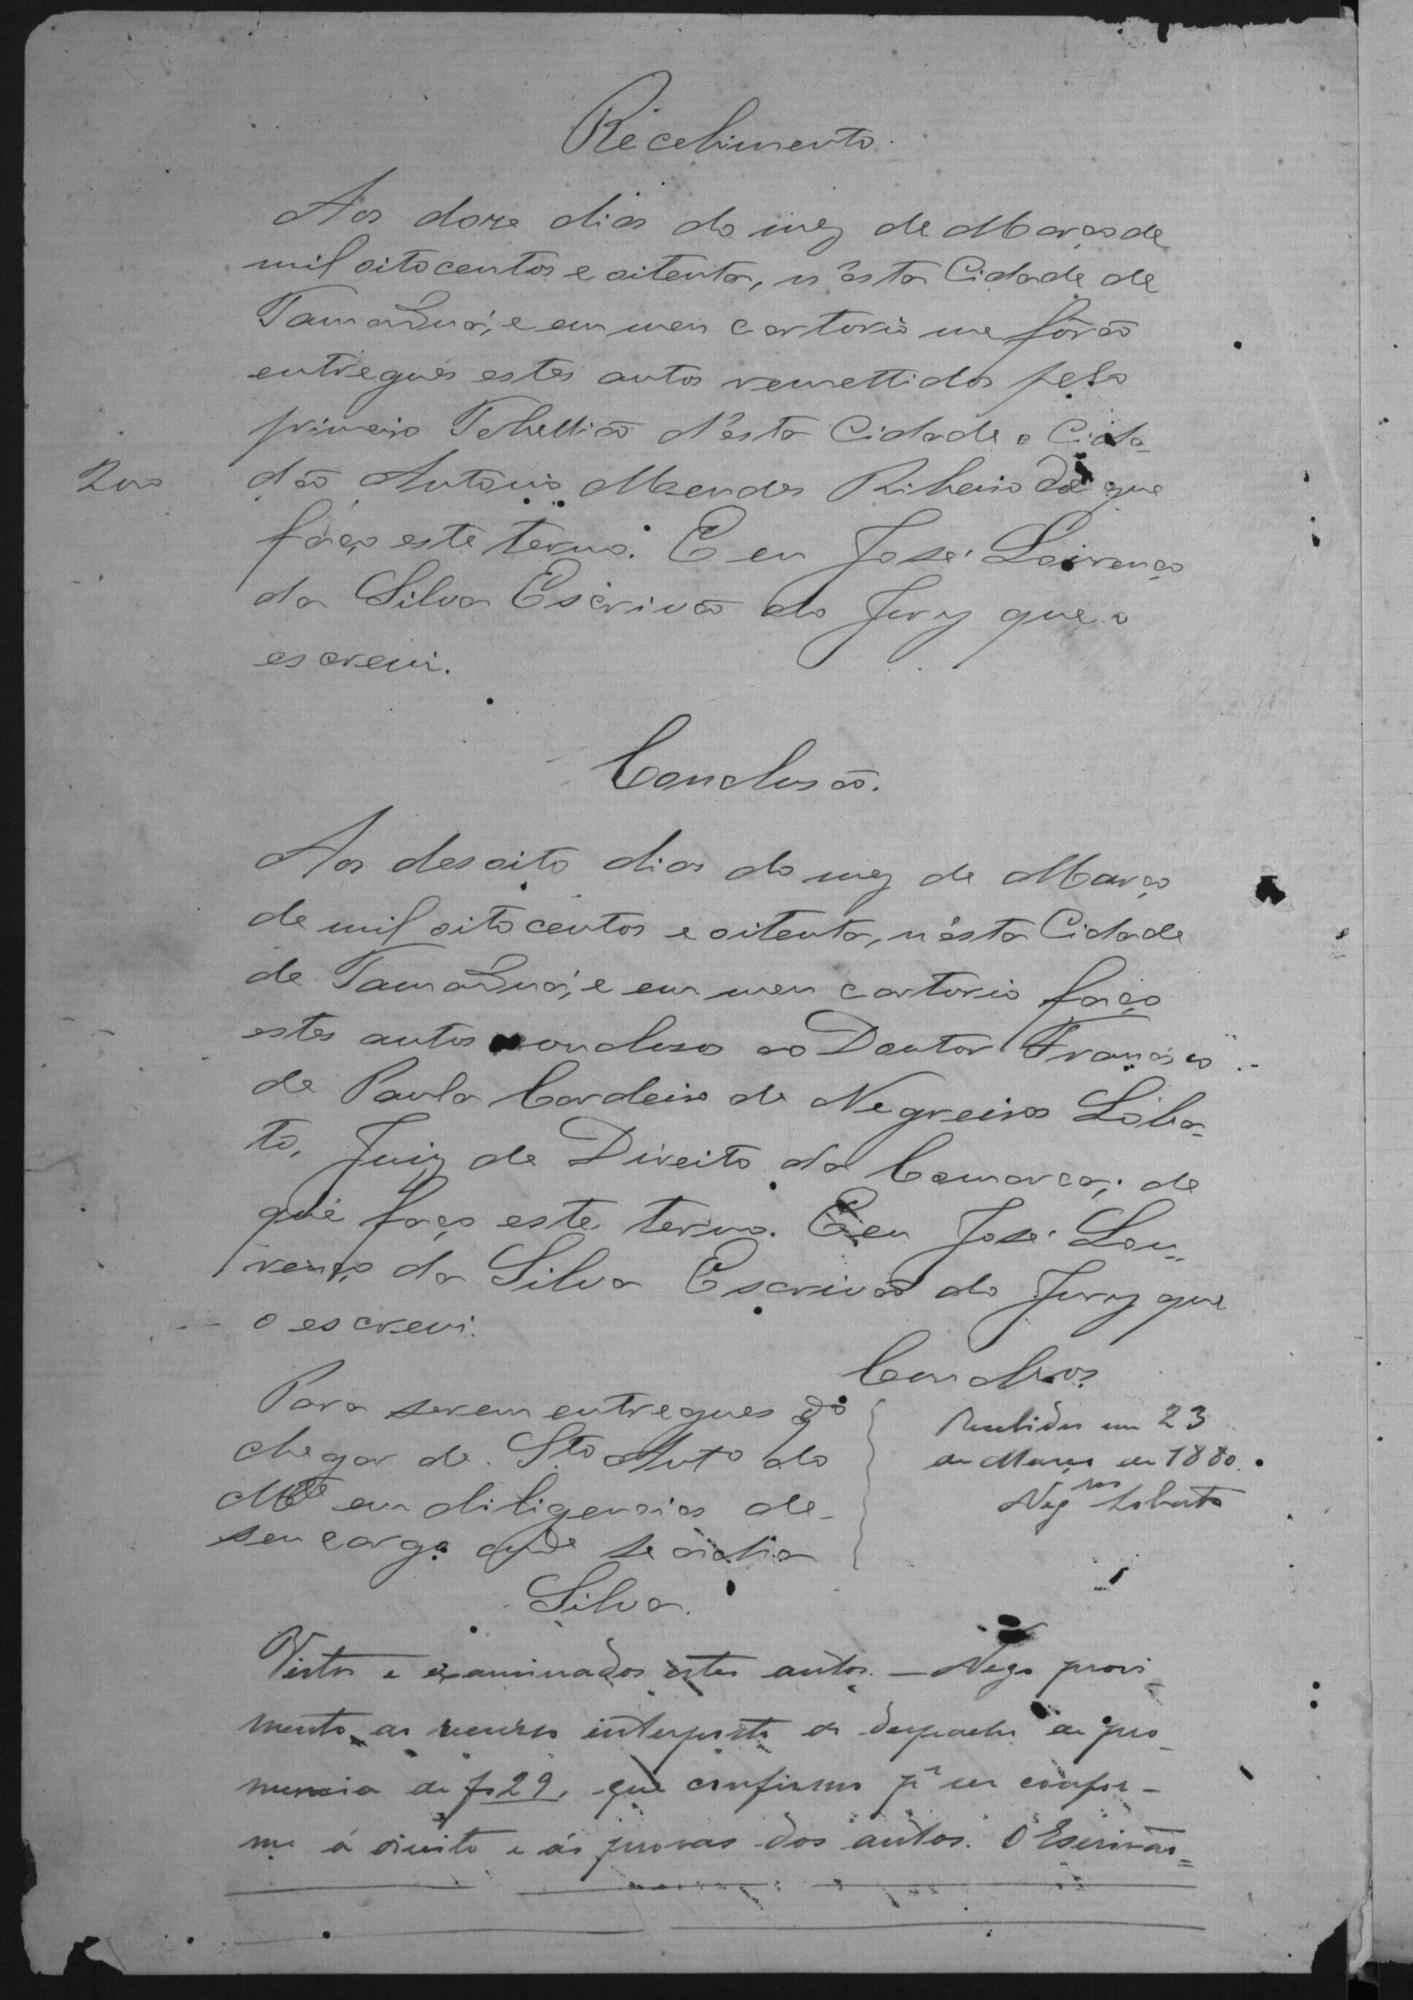 Recebimento.
Aos doze dias do mez de Março de
mil oito centos e oitenta, n'esta Cidade de
Tamanduá, e em meu cartorio me fôrão
entregues estes autos remettidos pelo
primeiro Tabellião d'esta Cidade o Cida-
dão Antonio Mendes Ribeiro de que
200
faço este termo. E eu José Lourenço
da Silva Escrivão do Jury que o
escrevi.
Conclusão.
Aos desoito dias do mez de Março
de mil oito centos e oitenta, n'esta Cidade
de Tamanduá, e em meu cartorio faço
estes autos concluso ao Doutor Francisco
de Paula Cordeiro de Negreiros Loba-
to, Juiz de Direito da Comarca; de
que faço este termo. E eu José Lou-
renço da Silva Escrivão do Jury que
o escrevi.
Conclusos
Para serem entregues qdo
chegar de Sto Anto do
Mte em diligencias de
seu cargo onde se acha
Silva.
Recebidos em 23
de Março de 1880.
Negros Lobato
Vistos e examinados estes autos — Nego provi-
mento ao recurso interposto do despacho de pro-
nuncia de fs 29, que confirmo pr ser confor-
me á direito e ás provas dos autos. O Escrivão